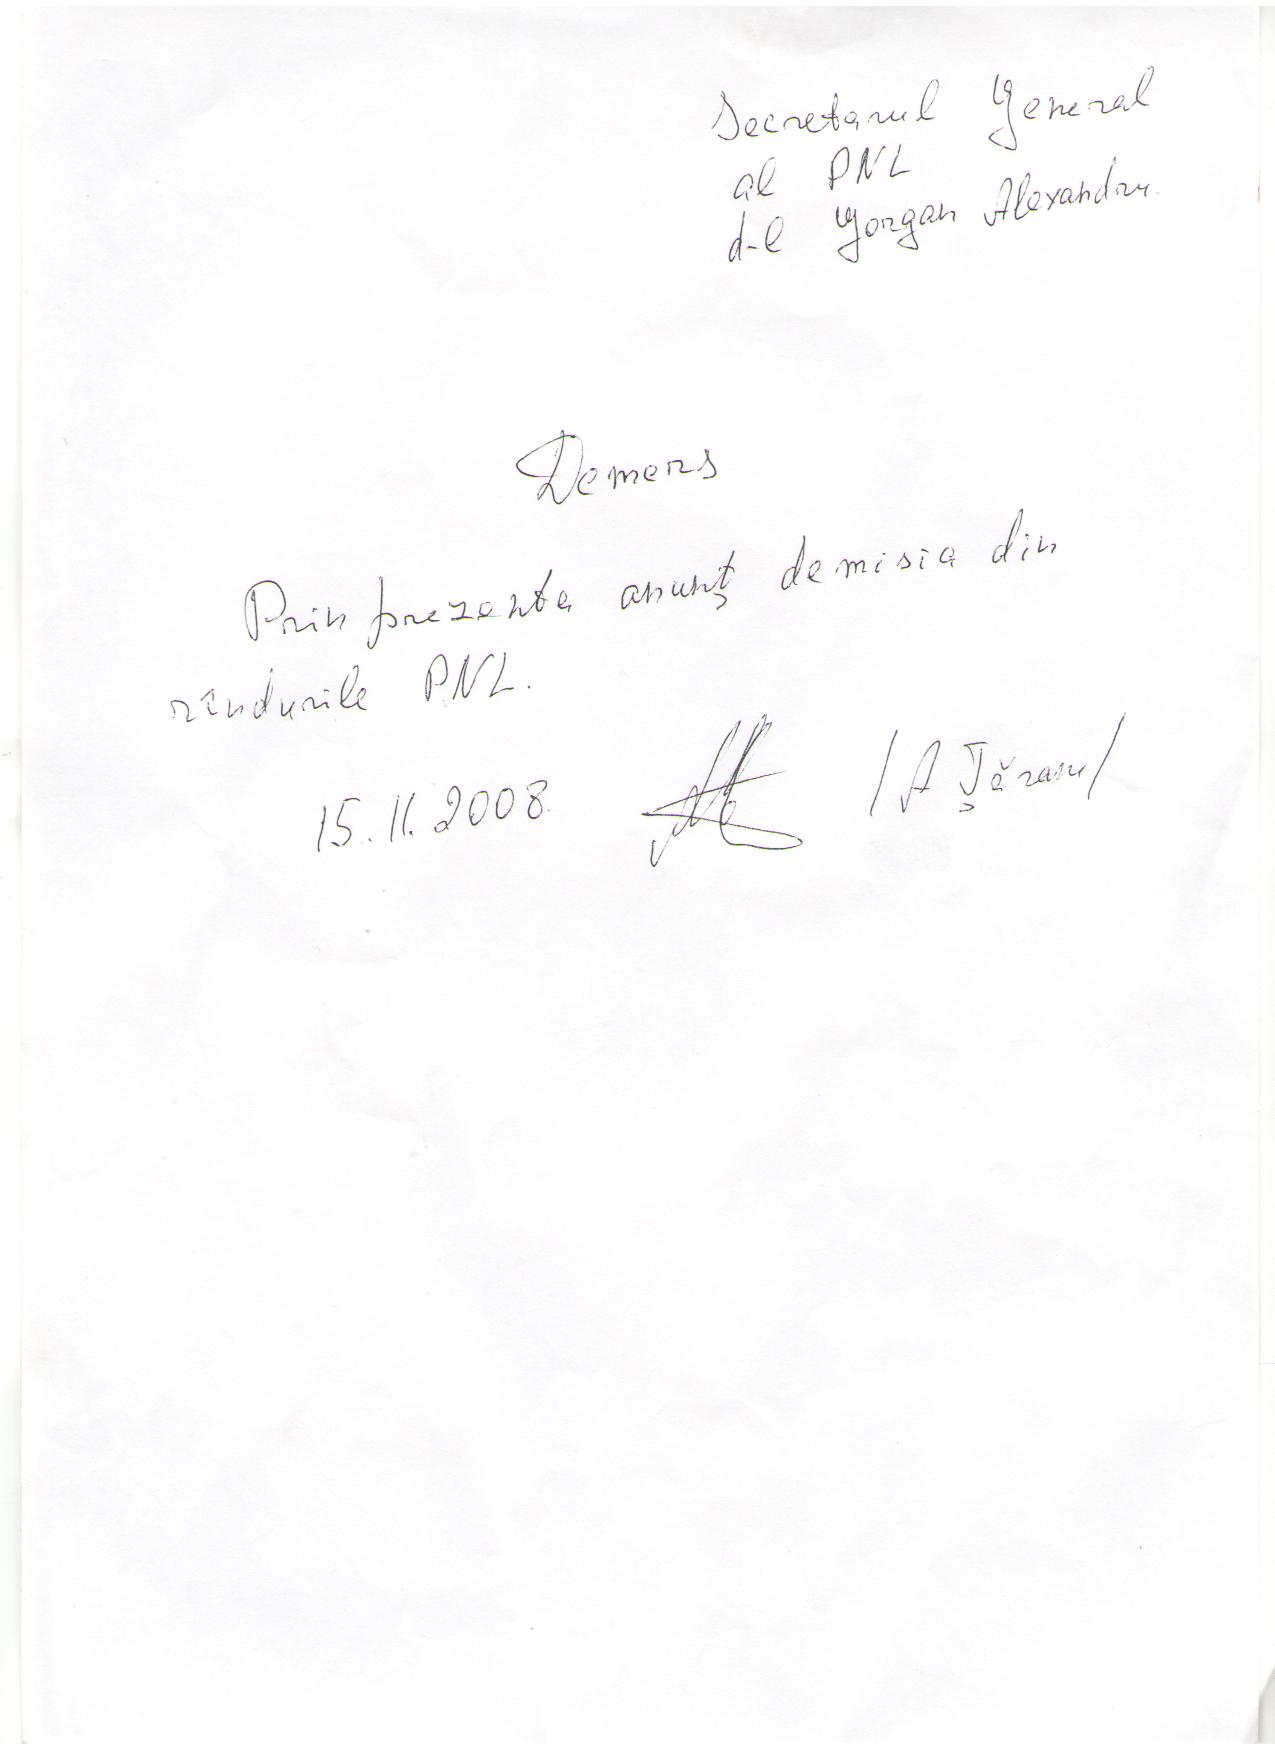 Secretarul General
al PNL
d-l Gorgan Alexandru.
Demers
Prin prezenta anunţ demisia din
rîndurile PNL.
15.11.2008. /A Ţăranu/